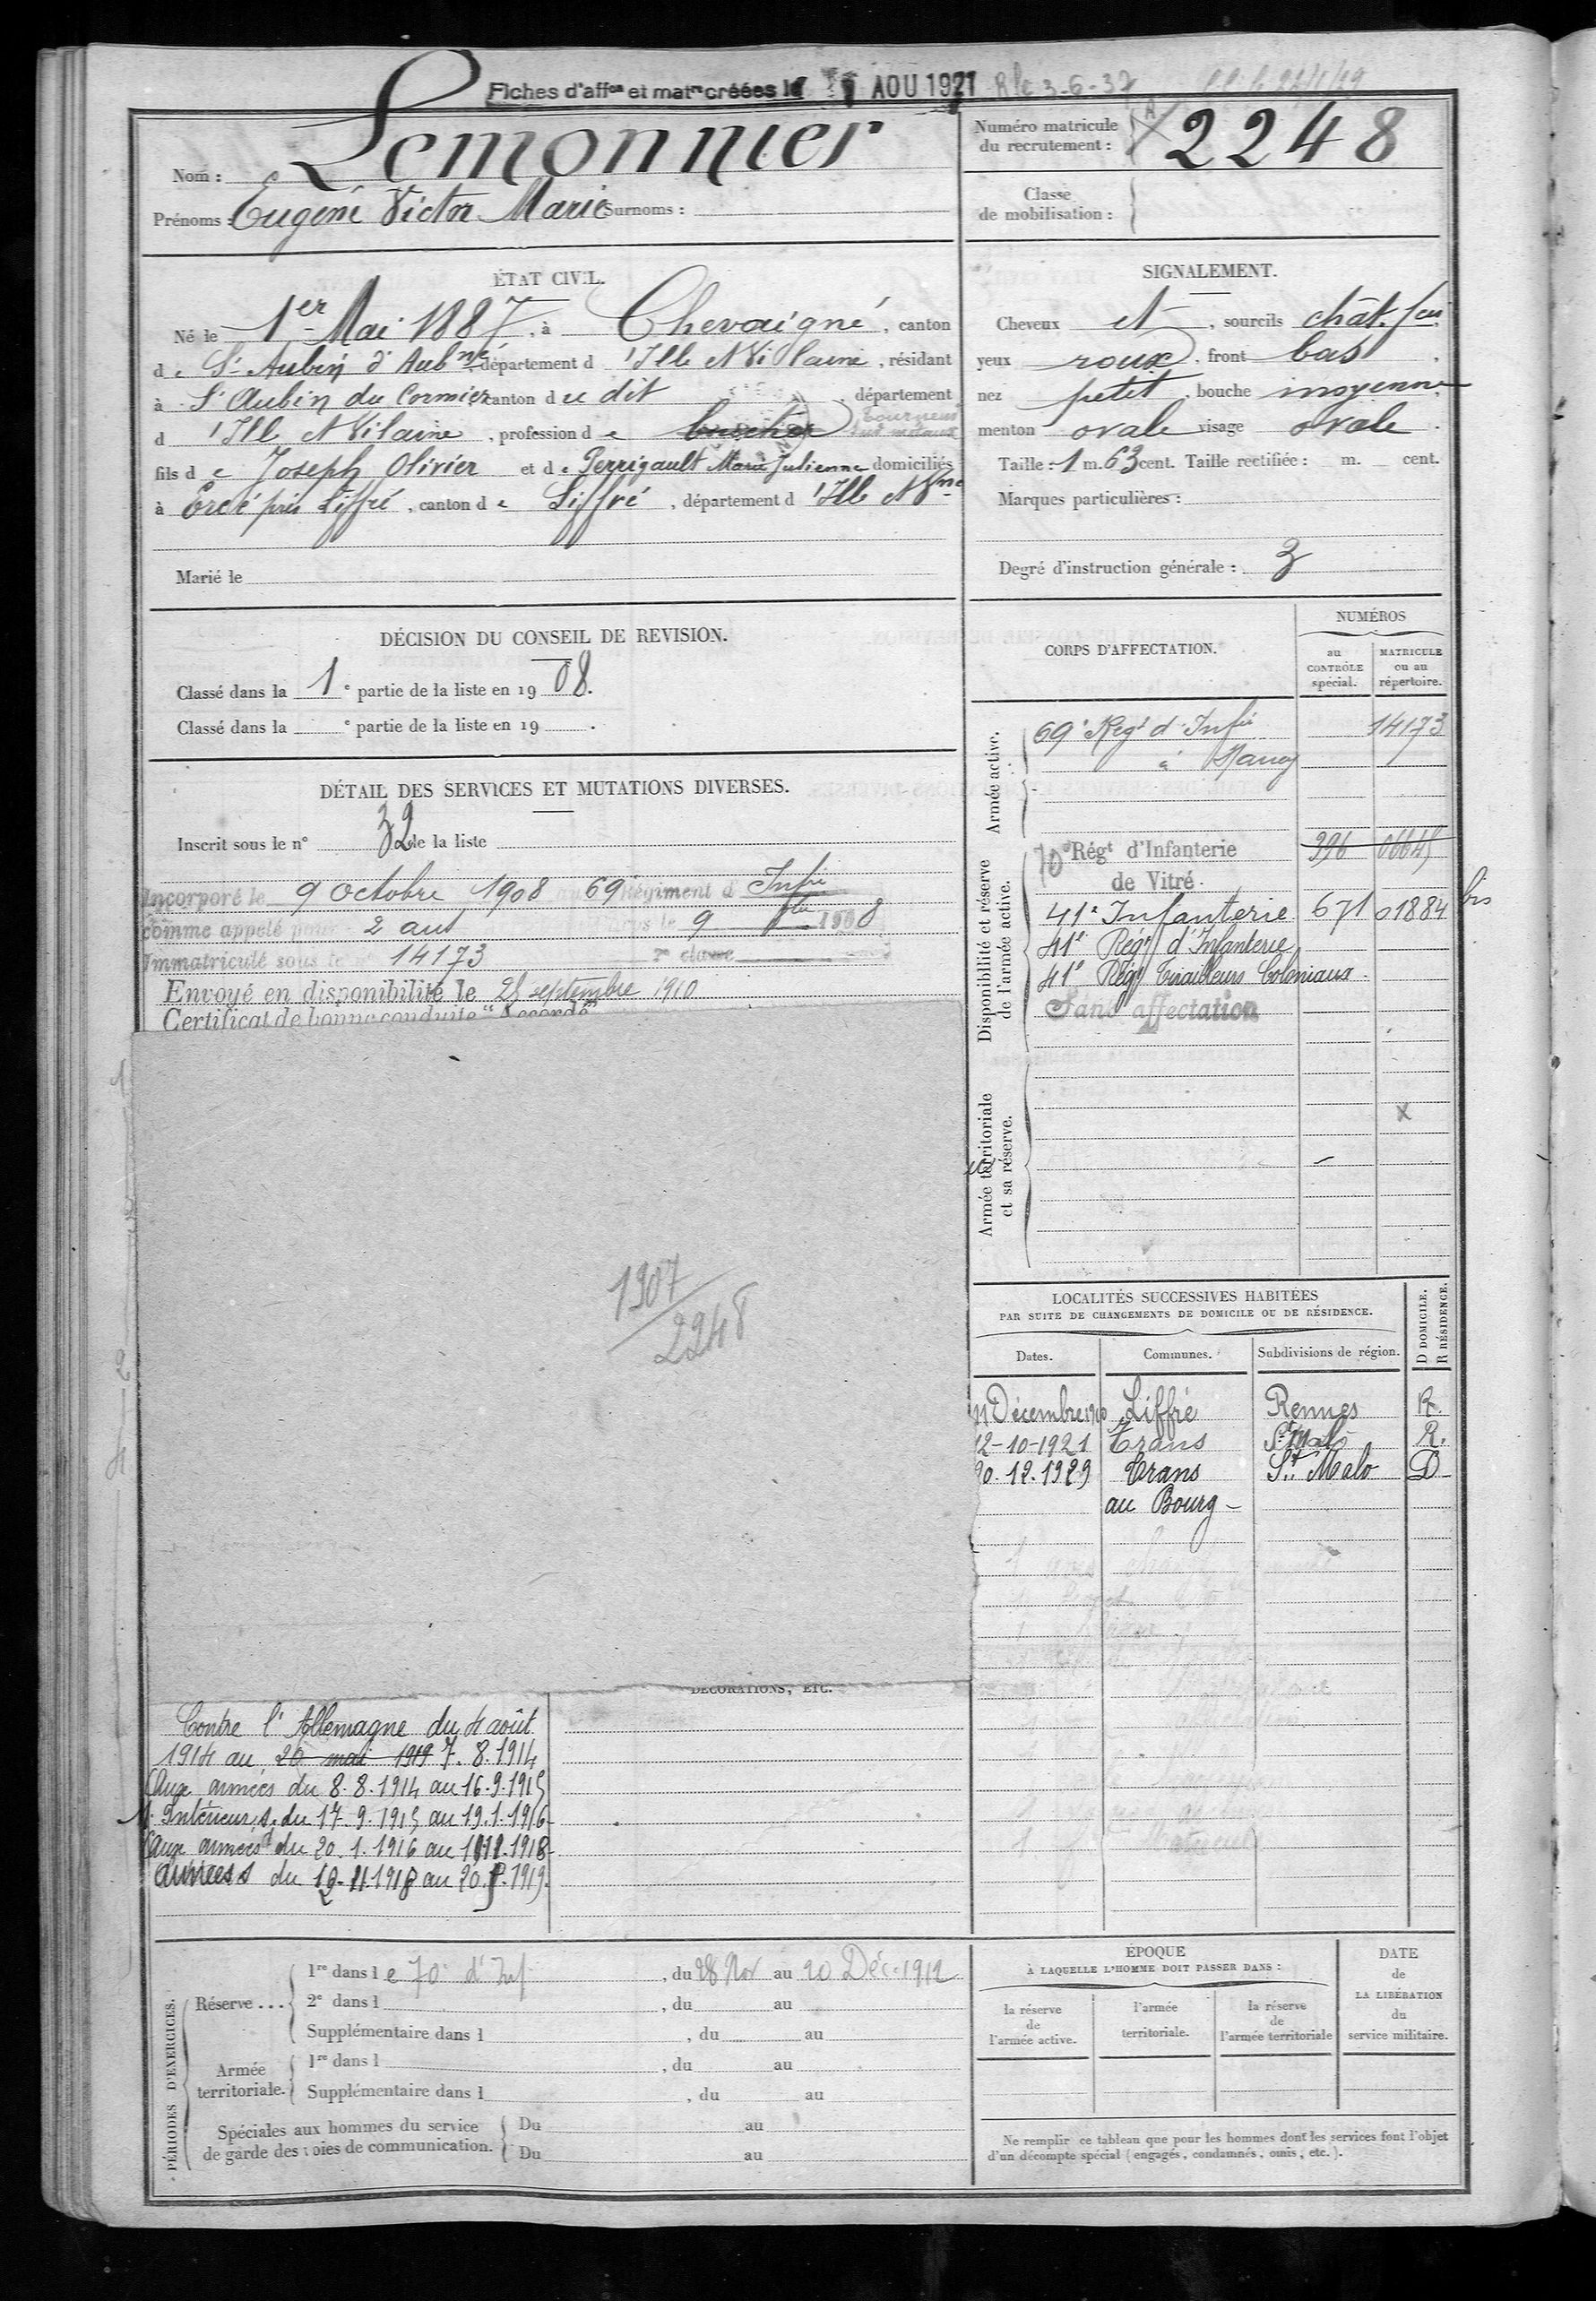 Fiches d'affon et matre créées le AOU 1921 Rle 3-6-37
Nom : Lemonnier
Prénoms : Eugène Victor Marie Surnoms :
Numéro matricule du recrutement : 2248
Classe de mobilisation :
ÉTAT CIVIL.
Né le 1er Mai 1887, à Chevaigné, canton
de St Aubin d'Aubné département d'Ille et Vilaine, résidant
à St Aubin du Cormier canton du dit, département
d'Ille et Vilaine, profession de boucher tourneur sur métaux
fils de Joseph Olivier et de Perrigault Marie Julienne domiciliés
à Ercé près Liffré, canton de Liffré, département d'Ille et Vne
Marié le
SIGNALEMENT.
Cheveux et, sourcils chât. fcé
yeux roux, front bas
nez petit, bouche moyenne
menton ovale visage ovale.
Taille : 1 m. 63 cent. Taille rectifiée : m. cent.
Marques particulières :
Degré d'instruction générale : 3
DÉCISION DU CONSEIL DE REVISION.
Classé dans la 1e partie de la liste en 1908.
Classé dans la e partie de la liste en 19 .
DÉTAIL DES SERVICES ET MUTATIONS DIVERSES.
Inscrit sous le n° 32 de la liste
Incorporé le 9 octobre 1908 au 69e Régiment d'Infie
comme appelé pour 2 ans le 9 1908
Immatriculé sous le n° 14173 2e classe
Envoyé en disponibilité le 25 septembre 1910
Certificat de bonne conduite "Accordé"
1907
2248
CORPS D'AFFECTATION.
NUMÉROS
au CONTRÔLE spécial.
MATRICULE ou au répertoire.
Armée active.
69e Régt d'Infie 14173
à Nancy
Disponibilité et réserve de l'armée active.
70e Régt d'Infanterie 396 06645
de Vitré
41e Infanterie 671 01884 bis
41e Régt d'Infanterie
41e Régt Tirailleurs Coloniaux
Sans affectation
Armée territoriale et sa réserve.
x
LOCALITÉS SUCCESSIVES HABITÉES
PAR SUITE DE CHANGEMENTS DE DOMICILE OU DE RÉSIDENCE.
D DOMICILE.
R RÉSIDENCE.
Dates. Communes. Subdivisions de région.
11 Décembre 1910 Liffré Rennes R.
12-10-1921 Trans St Malo R.
20.12.1929 Trans St Malo D
au Bourg
DÉCORATIONS, ETC.
Contre l'Allemagne du 4 août
1914 au 20 mai 1919 7.8.1914
Aux armées du 8.8.1914 au 16.9.1915
Intérieur, du 17.9.1915 au 19.1.1916
Aux armées du 20.1.1916 au 11.11.1918
armées du 12.11.1918 au 20.5.1919.
PÉRIODES D'EXERCICES.
Réserve ...
1re dans le 70e d'Inf, du 28 Nov au 20 Déc. 1912
2e dans l , du au
Supplémentaire dans l , du au
Armée territoriale.
1re dans l , du au
Supplémentaire dans l , du au
Spéciales aux hommes du service de garde des voies de communication.
Du au
Du au
ÉPOQUE
À LAQUELLE L'HOMME DOIT PASSER DANS :
la réserve de l'armée active.
l'armée territoriale.
la réserve de l'armée territoriale
DATE
de
LA LIBÉRATION
du
service militaire.
Ne remplir ce tableau que pour les hommes dont les services font l'objet
d'un décompte spécial (engagés, condamnés, omis, etc.).